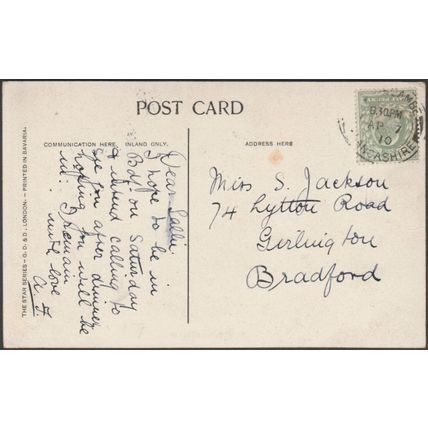 POST CARD
COMMUNICATION HERE. INLAND ONLY.
ADDRESS HERE
THE STAR SERIES - G. D. & D., LONDON. - PRINTED IN BAVARIA.
Dear Sallie
I hope to be in
Bd/ on Saturday
& intend calling to
see you after dinner
hoping you will be
in. I remain
with love
A. J.
Miss S. Jackson
74 Lytton Road
Girlington
Bradford
8.30PM
AP 7
10